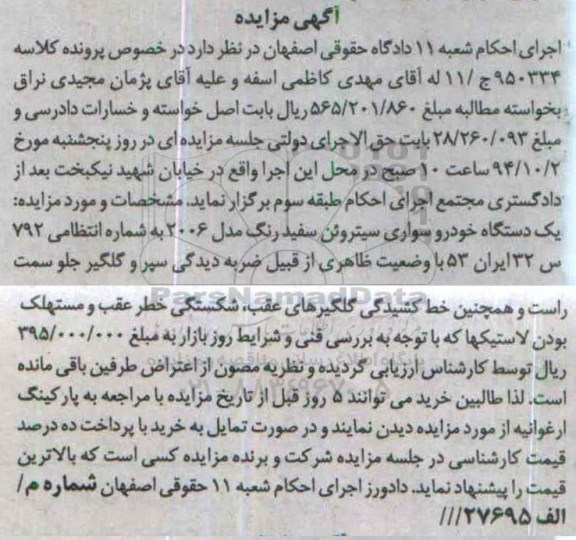 آگهی مزایده
اجرای احکام شعبه ۱۱ دادگاه حقوقی اصفهان در نظر دارد در خصوص پرونده کلاسه
۹۵۰۳۳۴ ج /۱۱ له آقای مهدی کاظمی اسفه و علیه آقای پژمان مجیدی نراق
بخواسته مطالبه مبلغ ۵۶۵/۲۰۱/۸۶۰ ریال بابت اصل خواسته و خسارات دادرسی و
مبلغ ۲۸/۲۶۰/۰۹۳ بابت حق الاجرای دولتی جلسه مزایده ای در روز پنجشنبه مورخ
۹۴/۱۰/۲ ساعت ۱۰ صبح در محل این اجرا واقع در خیابان شهید نیکبخت بعد از
دادگستری مجتمع اجرای احکام طبقه سوم برگزار نماید. مشخصات و مورد مزایده:
یک دستگاه خودرو سواری سیتروئن سفید رنگ مدل ۲۰۰۶ به شماره انتظامی ۷۹۲
س ۳۲ ایران ۵۳ با وضعیت ظاهری از قبیل ضربه دیدگی سپر و گلگیر جلو سمت
راست و همچنین خط کشیدگی گلگیرهای عقب، شکستگی خطر عقب و مستهلک
بودن لاستیکها که با توجه به بررسی فنی و شرایط روز بازار به مبلغ ۳۹۵/۰۰۰/۰۰۰
ریال توسط کارشناس ارزیابی گردیده و نظریه مصون از اعتراض طرفین باقی مانده
است. لذا طالبین خرید می توانند ۵ روز قبل از تاریخ مزایده با مراجعه به پارکینگ
ارغوانیه از مورد مزایده دیدن نمایند و در صورت تمایل به خرید با پرداخت ده درصد
قیمت کارشناسی در جلسه مزایده شرکت و برنده مزایده کسی است که بالاترین
قیمت را پیشنهاد نماید. دادورز اجرای احکام شعبه ۱۱ حقوقی اصفهان شماره م/
الف ۲۷۶۹۵///
ParsNamadData